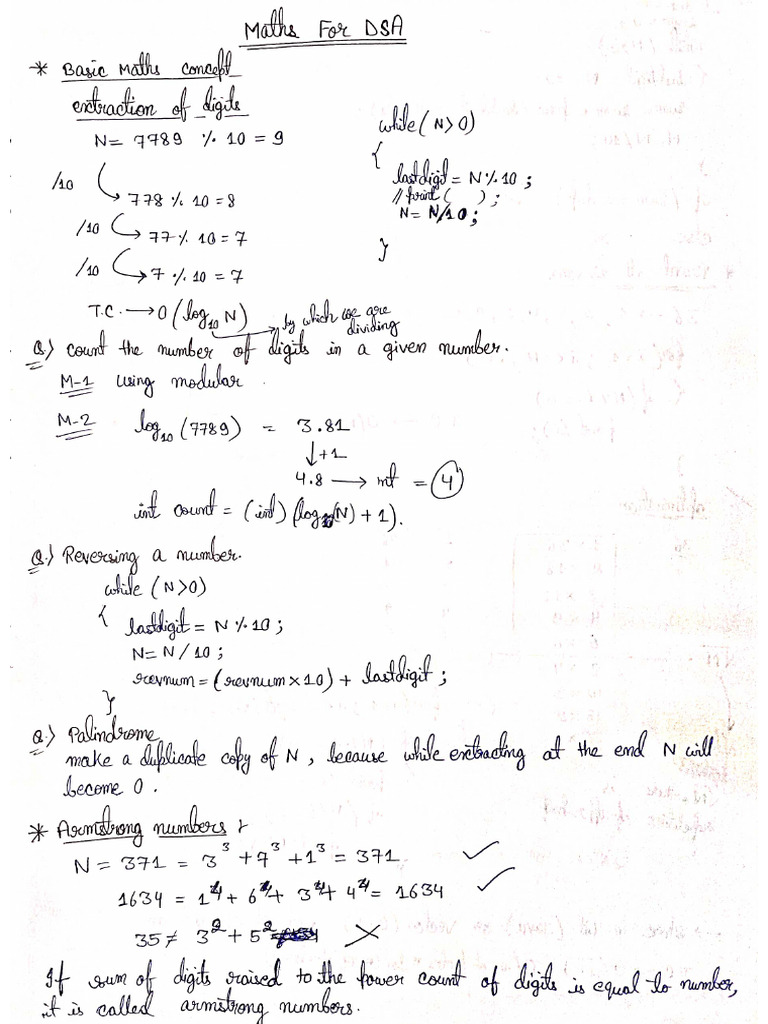 Maths For DSA
* Basic Maths concept
extraction of digits
N = 7789 % 10 = 9
/10
778 % 10 = 8
/10
77 % 10 = 7
/10
7 % 10 = 7
while(N>0)
{
lastdigit = N % 10 ;
// print( ) ;
N = N/10 ;
}
T.C. → O(log10 N)
→ by which we are dividing
Q.) count the number of digits in a given number.
M-1 using modular
M-2 log10 (7789) = 3.81
↓+1
4.8 → int = 4
int count = (int) (log10(N) + 1).
Q.) Reversing a number.
while (N>0)
{
lastdigit = N % 10 ;
N = N / 10 ;
revnum = (revnum × 10) + lastdigit ;
}
Q.) Palindrome
make a duplicate copy of N, because while extracting at the end N will
become 0.
* Armstrong numbers :
N = 371 = 3³ + 7³ + 1³ = 371 ✓
1634 = 1⁴ + 6⁴ + 3⁴ + 4⁴ = 1634 ✓
35 ≠ 3² + 5² ×
If sum of digits raised to the power count of digits is equal to number,
it is called armstrong numbers.